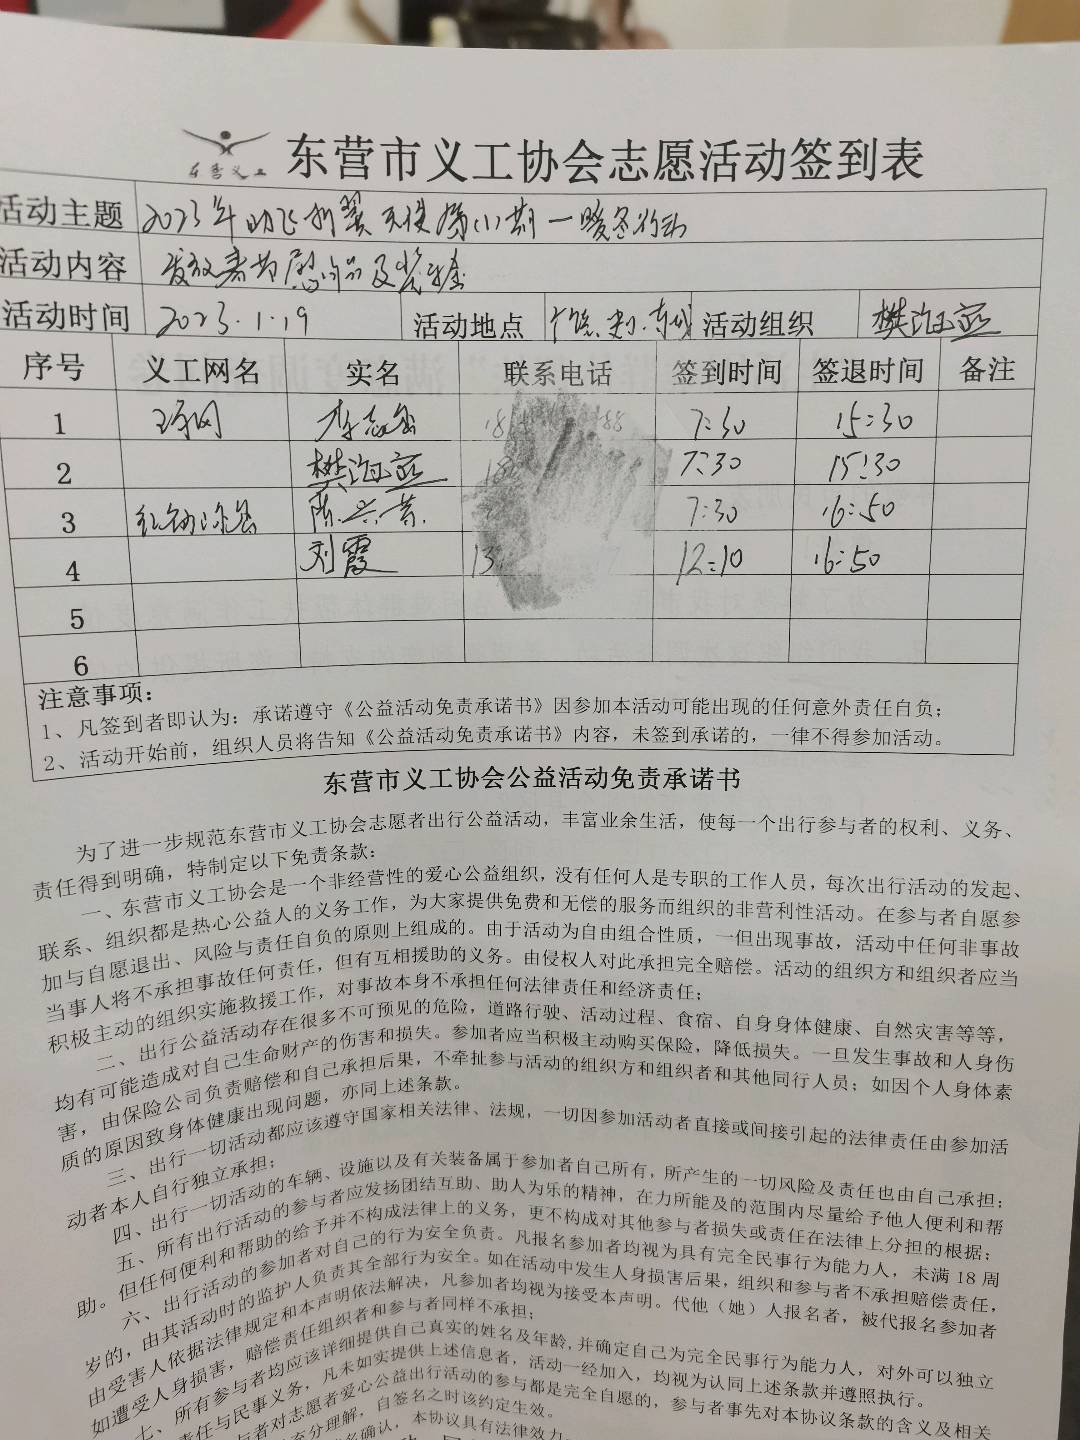 东营义工
东营市义工协会志愿活动签到表
活动主题 2023年助飞折翼天使第111期一暖冬行动
活动内容 发放春节慰问品及
活动时间 2023.1.19 活动地点 活动组织
序号 义工网名 实名 联系电话 签到时间 签退时间 备注
1 7:30 15:30
2 7:30 15:30
3 7:30 16:50
4 刘霞 13 12:10 16:50
5
6
注意事项：
1、凡签到者即认为：承诺遵守《公益活动免责承诺书》因参加本活动可能出现的任何意外责任自负；
2、活动开始前，组织人员将告知《公益活动免责承诺书》内容，未签到承诺的，一律不得参加活动。
东营市义工协会公益活动免责承诺书
为了进一步规范东营市义工协会志愿者出行公益活动，丰富业余生活，使每一个出行参与者的权利、义务、
责任得到明确，特制定以下免责条款：
一、东营市义工协会是一个非经营性的爱心公益组织，没有任何人是专职的工作人员，每次出行活动的发起、
联系、组织都是热心公益人的义务工作，为大家提供免费和无偿的服务而组织的非营利性活动。在参与者自愿参
加与自愿退出、风险与责任自负的原则上组成的。由于活动为自由组合性质，一但出现事故，活动中任何非事故
当事人将不承担事故任何责任，但有互相援助的义务。由侵权人对此承担完全赔偿。活动的组织方和组织者应当
积极主动的组织实施救援工作，对事故本身不承担任何法律责任和经济责任；
二、出行公益活动存在很多不可预见的危险，道路行驶、活动过程、食宿、自身身体健康、自然灾害等等，
均有可能造成对自己生命财产的伤害和损失。参加者应当积极主动购买保险，降低损失。一旦发生事故和人身伤
害，由保险公司负责赔偿和自己承担后果，不牵扯参与活动的组织方和组织者和其他同行人员；如因个人身体素
质的原因致身体健康出现问题，亦同上述条款。
三、出行一切活动都应该遵守国家相关法律、法规，一切因参加活动者直接或间接引起的法律责任由参加活
动者本人自行独立承担；
四、出行一切活动的车辆、设施以及有关装备属于参加者自己所有，所产生的一切风险及责任也由自己承担；
五、所有出行活动的参与者应发扬团结互助、助人为乐的精神，在力所能及的范围内尽量给予他人便利和帮
助。但任何便利和帮助的给予并不构成法律上的义务，更不构成对其他参与者损失或责任在法律上分担的根据；
六、出行活动的参加者对自己的行为安全负责。凡报名参加者均视为具有完全民事行为能力人，未满 18 周
岁的，由其活动时的监护人负责其全部行为安全。如在活动中发生人身损害后果，组织和参与者不承担赔偿责任，
由受害人依据法律规定和本声明依法解决，凡参加者均视为接受本声明。代他（她）人报名者，被代报名参加者
如遭受人身损害，赔偿责任组织者和参与者同样不承担；
七、所有参与者均应该详细提供自己真实的姓名及年龄，并确定自己为完全民事行为能力人，对外可以独立
责任与民事义务，凡未如实提供上述信息者，活动一经加入，均视为认同上述条款并遵照执行。
与者对志愿者爱心公益出行活动的参与都是完全自愿的，参与者事先对本协议条款的含义及相关
充分理解，自签名之时该约定生效。
名确认，本协议具有法律效力